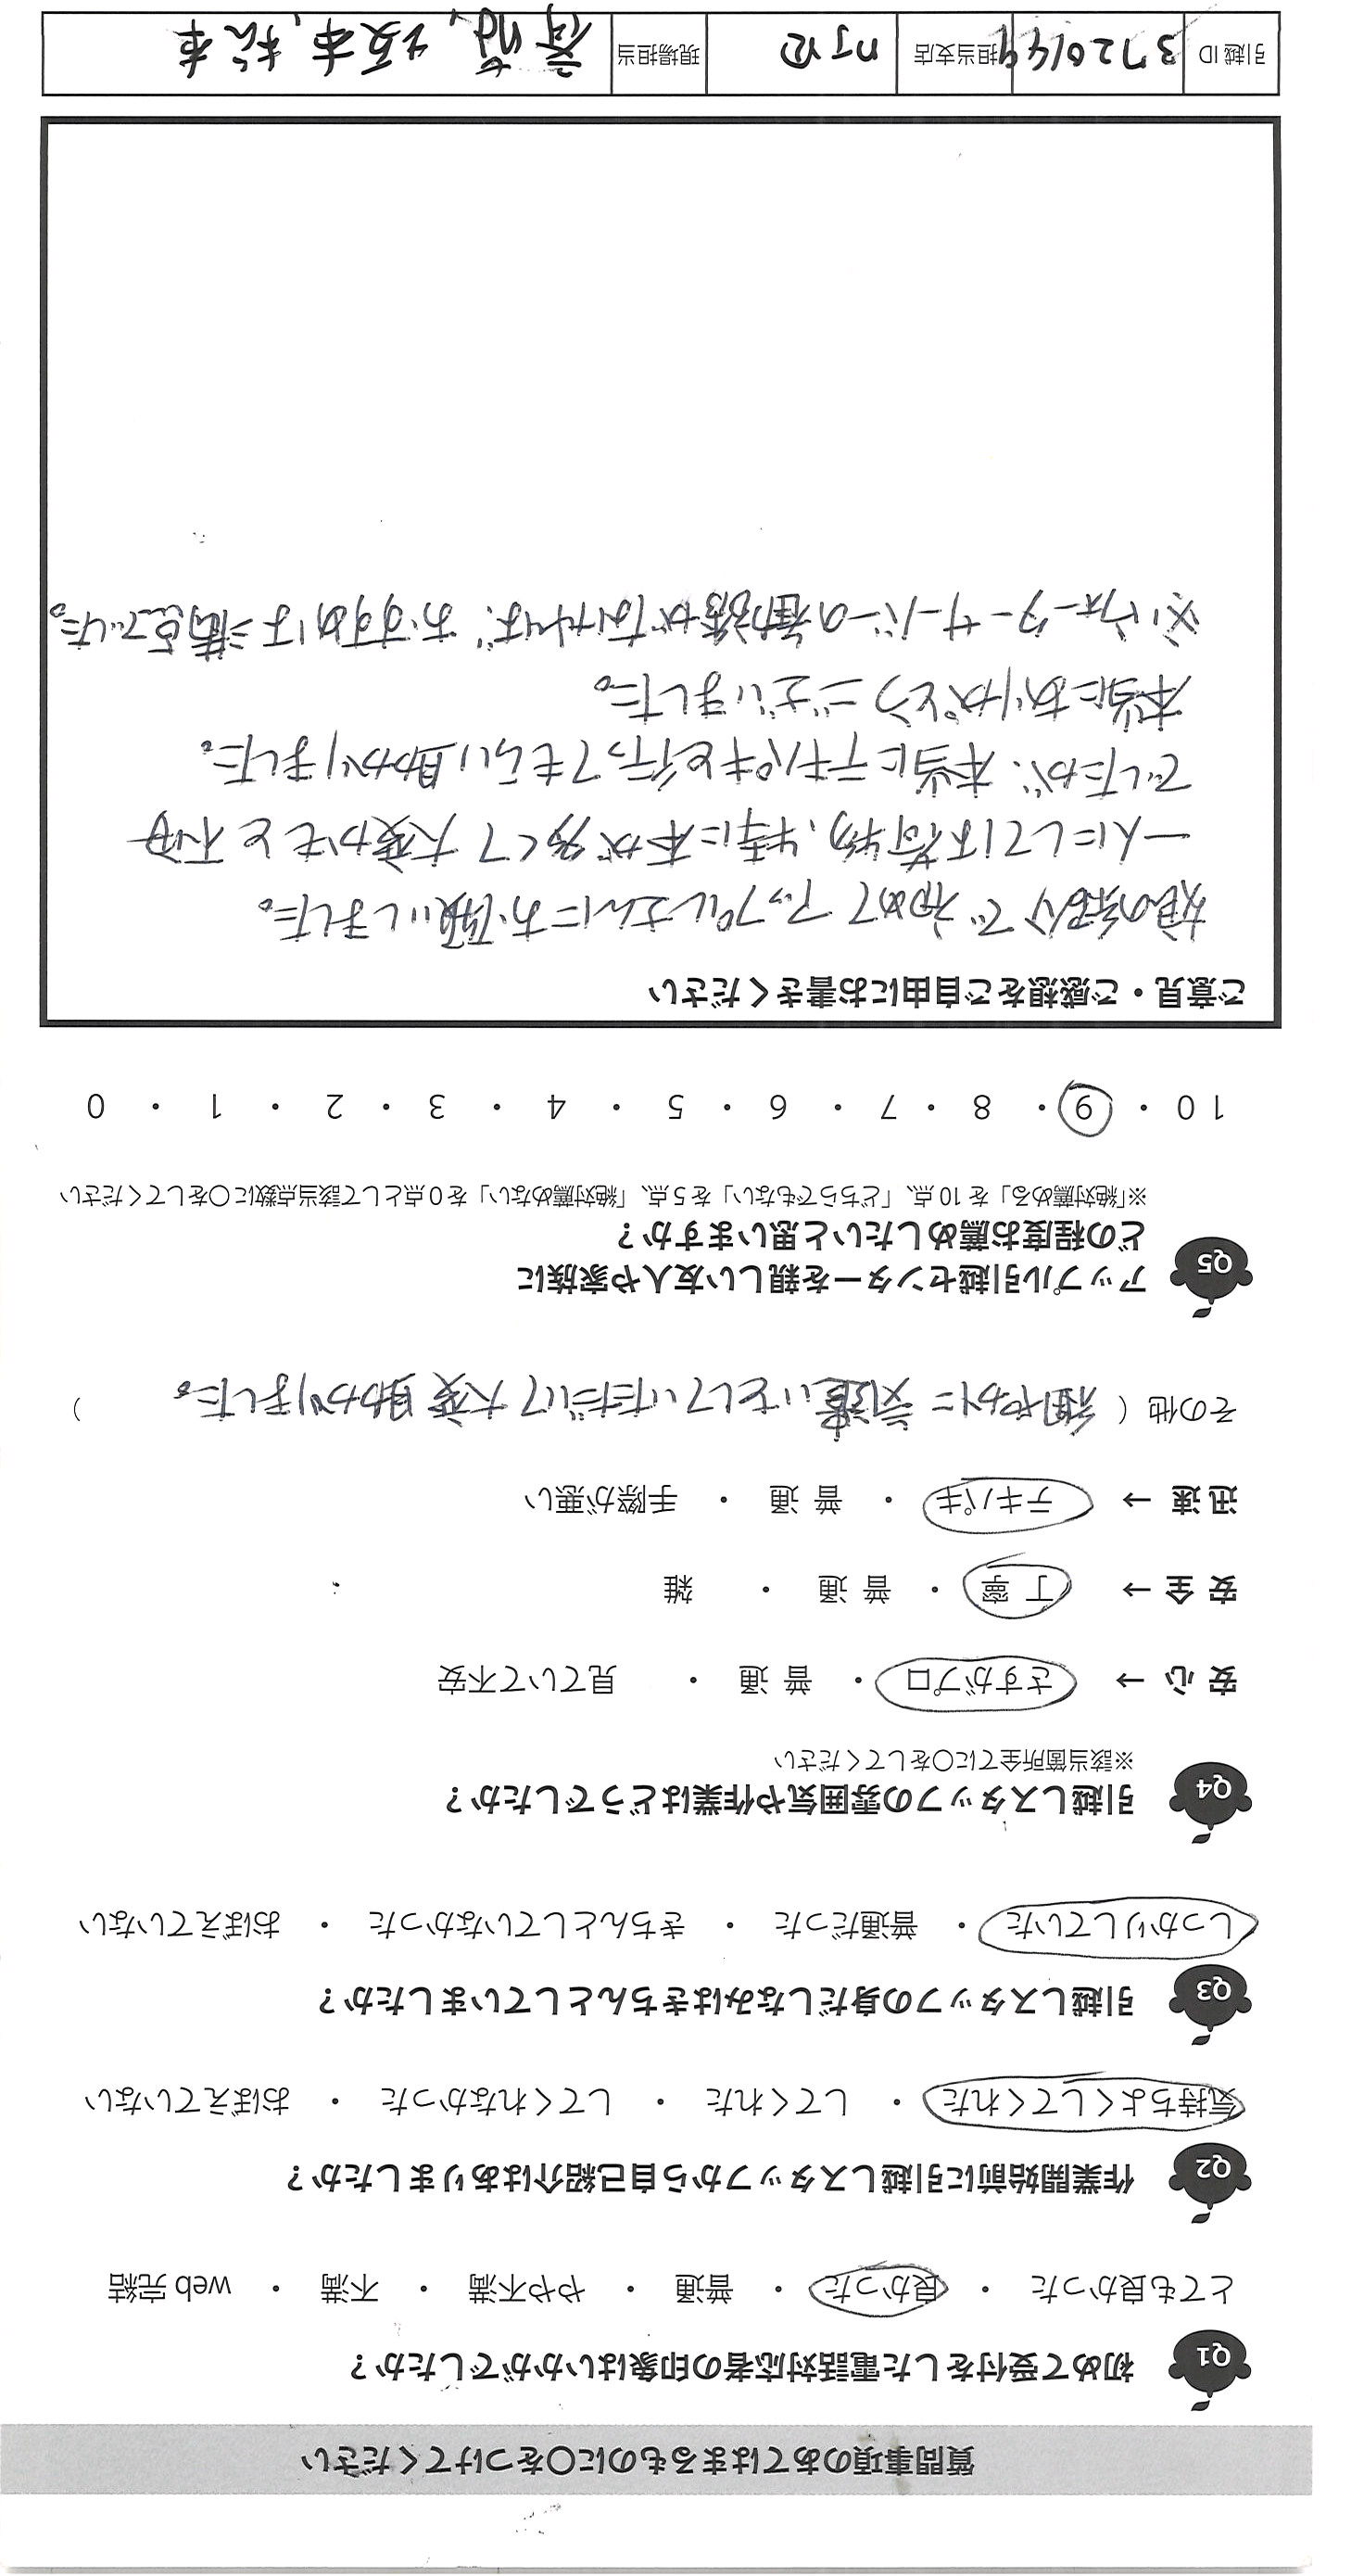 質問事項のあてはまるものに○をつけてください
Q1 初めて受付をした電話対応者の印象はいかがでしたか?
とても良かった ・ 良かった ・ 普通 ・ やや不満 ・ 不満 ・ web 完結
Q2 作業開始前に引越しスタッフから自己紹介はありましたか?
気持ちよくしてくれた ・ してくれた ・ してくれなかった ・ おぼえていない
Q3 引越しスタッフの身だしなみはきちんとしていましたか?
しっかりしていた ・ 普通だった ・ きちんとしていなかった ・ おぼえていない
Q4 引越しスタッフの雰囲気や作業はどうでしたか?
※該当箇所全てに○をしてください
安心 → さすがプロ ・ 普通 ・ 見ていて不安
安全 → 丁寧 ・ 普通 ・ 雑
迅速 → テキパキ ・ 普通 ・ 手際が悪い
その他 ( 細やかに気遣いをしていただいて大変助かりました。 )
Q5 アップル引越センターを親しい友人や家族に
どの程度お薦めしたいと思いますか?
※「絶対薦める」を 10 点、「どちらでもない」を 5 点、「絶対薦めない」を 0 点として該当点数に○をしてください
10 ・ 9 ・ 8 ・ 7 ・ 6 ・ 5 ・ 4 ・ 3 ・ 2 ・ 1 ・ 0
ご意見・ご感想をご自由にお書きください
娘の紹介で初めてアップルさんにお願いしました。
一人にしては荷物、特に本が多くて大変かもと不安
でしたが、本当にテキパキと行ってもらい助かりました。
本当にありがとうございました。
※ウォーターサーバーの勧誘がなければ、おすすめは満点でした。
引越 ID 3720144 担当支店 現場担当 坂本、松本